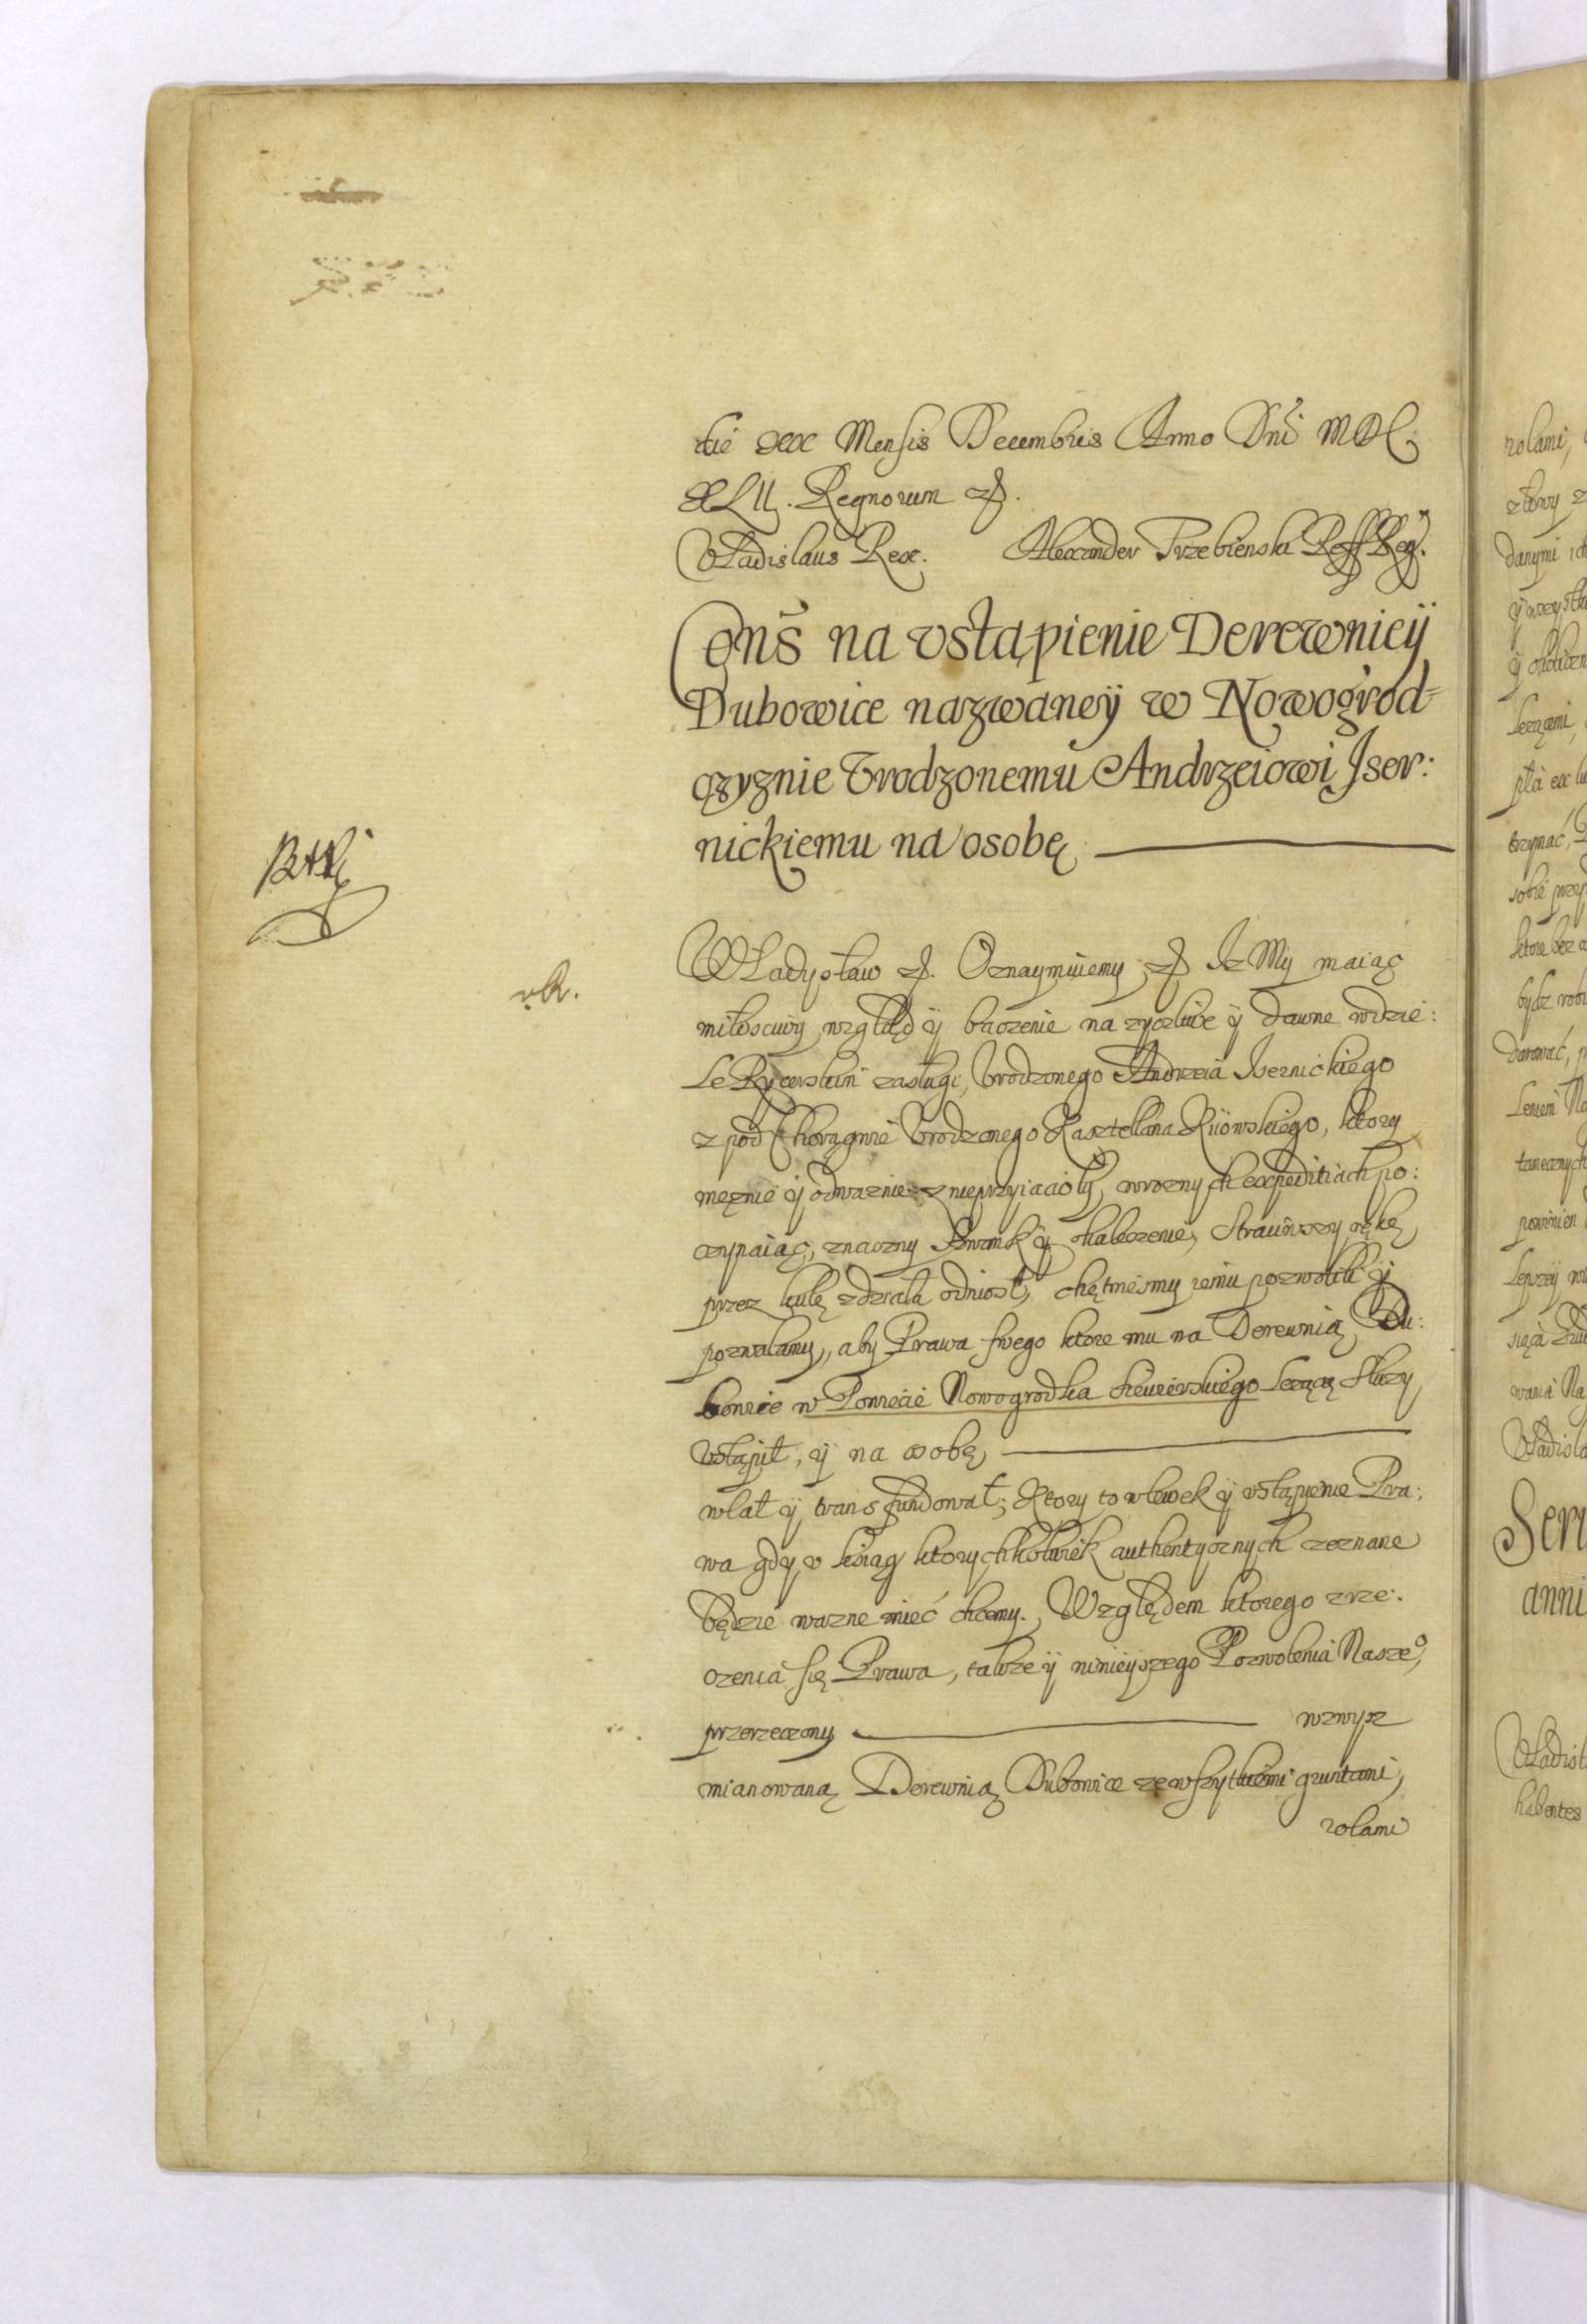 die xxx Mensis Decembris Anno Dni MDC
XLII. Regnorum
Vladislaus Rex. Alexander Trzebienski Reff Reg.
Cons na vstąpienie Derewnieÿ
Dubowice nazwaneÿ w Nowogrod=
czyznie Vrodzonemu Andrzeiowi Iser:
nickiemu na osobę
Władysław Oznaymuiemy Iz My maiąc
miłosciwy wzgląd ÿ baczenie na zyczliwe ÿ dawne wdzie:
le Rycerskim zasługi, Vrodzonego Andrzeia Isernickiego
z pod Chorągwie Vrodzonego Kasztellana Kiiowskiego, ktory
męznie ÿ odwaznie z nieprzyiacioły, wroznych expeditiach po:
czynaiąc, znaczny ÿ okaleczenie, Straciwszy rękę
przez kulę zdziała odniosł, chętniesmy iemu pozwolili ÿ
pozwalamy, aby Prawa swego ktore mu na Derewnią Du:
bowice w Powiecie Nowogrodka Siewierskiego Lezącą słuzy
Vstąpił, ÿ na osobę
wlał ÿ transfundował; Ktory to wlewek ÿ vstąpienie Pra:
wa gdy v ksiąg ktorychkolwiek authentycznych zeznane
będzie wazne miec chcemy. Względem ktorego zrze:
czenia się Prawa, takze ÿ ninieÿszego Pozwolenia Nasze°,
przerzeczony wzwysz
mianowaną Derewnią Dubowice ze wszytkiemi gruntami,
rolami
rolami,
danymi
Lezącemi,
trzymać,
sobie
ktore bez
bydz
darować,
Leniem
tanecznych
powinien
Lepszeÿ
wania Na
Vladisla
Seru
anni
Vladisl
habentes